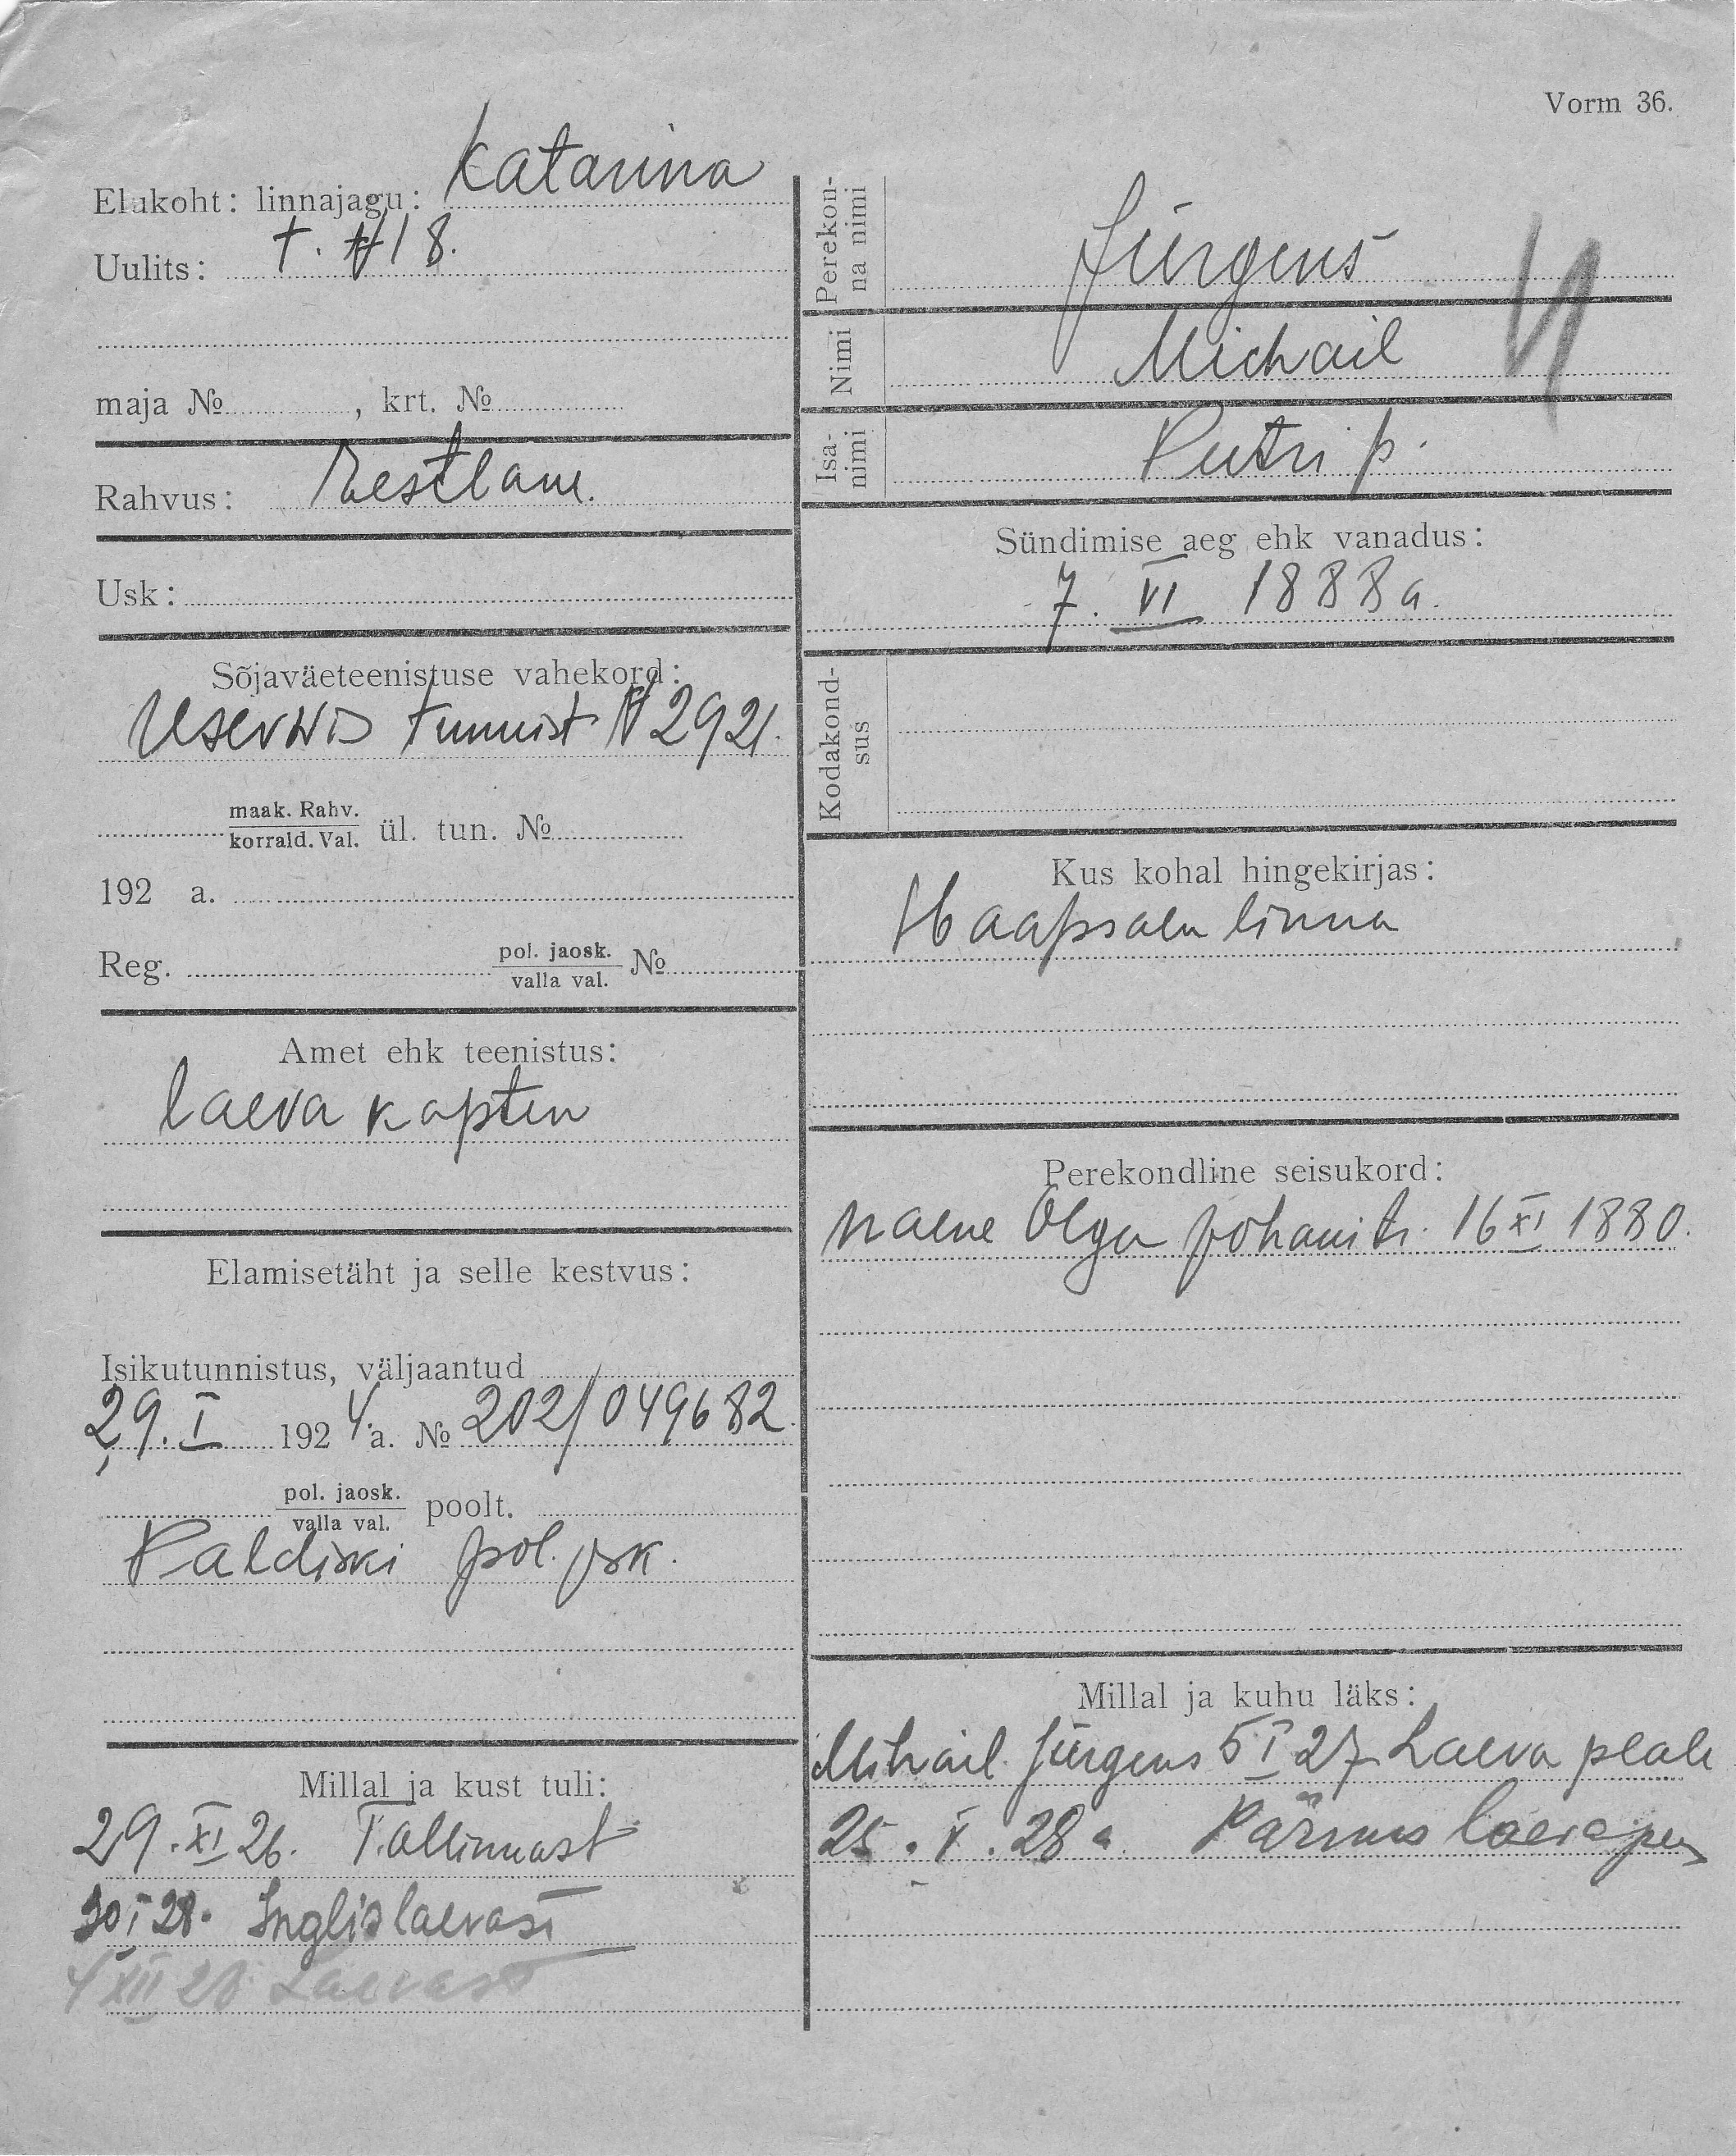 Vorm 36.
Elukoht: linnajagu: Katarina
Uulits: t. № 18.
maja № , krt. №
Rahvus: Eestlane.
Usk:
Sõjaväeteenistuse vahekord:
reservis tunnist № 2921.
maak. Rahv.
korrald. Val. ül. tun. №
192 a.
Reg. pol. jaosk.
valla val. №
Amet ehk teenistus:
laeva kapten
Elamisetäht ja selle kestvus:
Isikutunnistus, väljaantud
29. I 1924 a. № 202/049682.
pol. jaosk.
valla val. poolt.
Paldiski pol. jsk.
Millal ja kust tuli:
29. XI 26. Tallinnast
30 I 28. Inglis laevast
4 XII 28 Laevast
Perekonna nimi Jürgens
Nimi Michail
Isanimi Peetri p.
Sündimise aeg ehk vanadus:
7. VI 1888 a.
Kodakondsus
Kus kohal hingekirjas:
Haapsalu linna
Perekondline seisukord:
naene Olga Johani tr. 16 XI 1880.
Millal ja kuhu läks:
Mihail Jürgens 5 I 27 Laeva peale
25. V. 28 a. Pärnus laeva